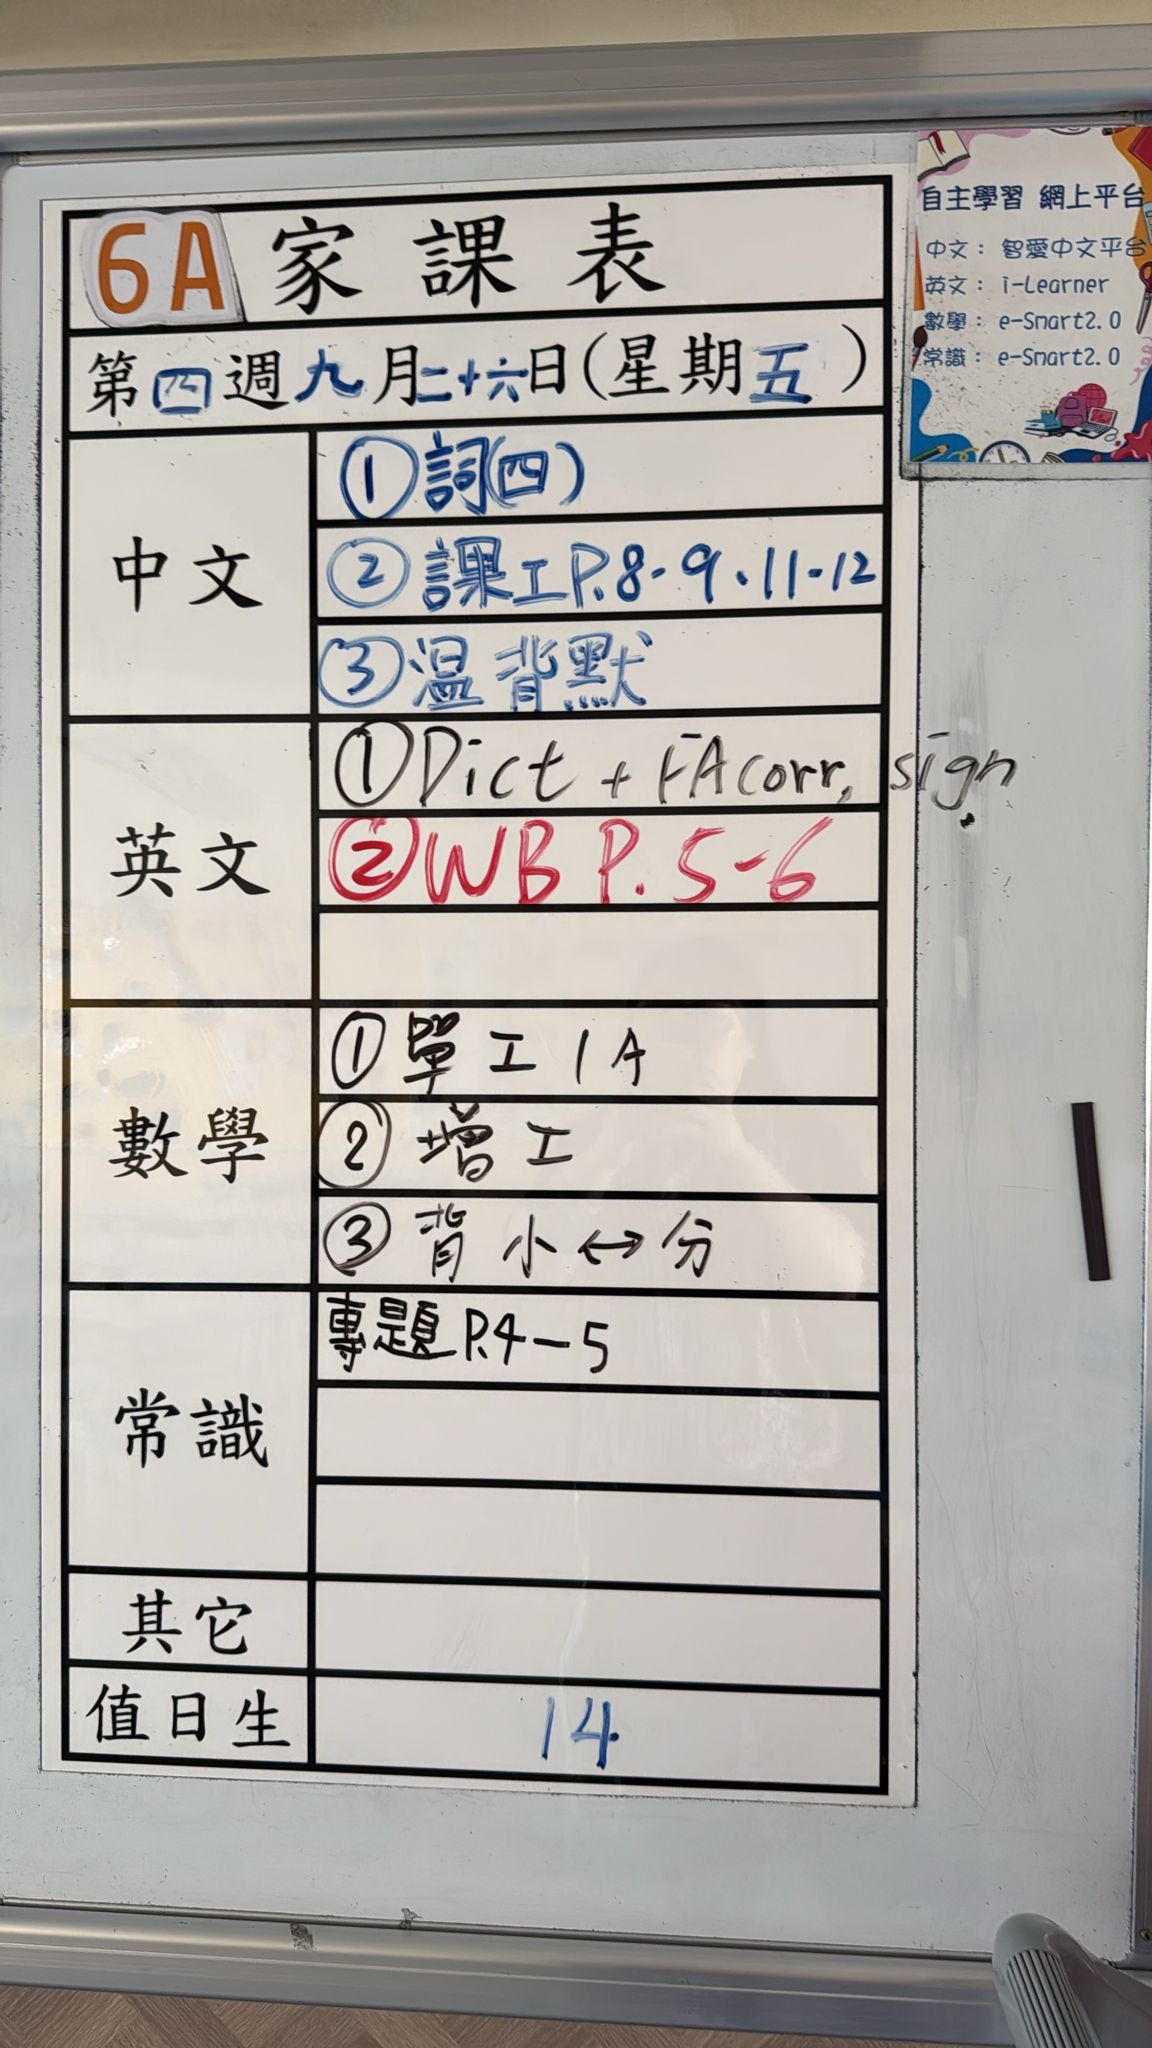 6A 家課表
第四週九月二十六日(星期五)
中文
①詞(四)
②課工P.8-9、11-12
③温背默
英文
①Dict + FA corr, sign
②WB P.5-6
數學
①單工1A
②增工
③背小↔分
常識
專題P.4-5
其它
值日生
14
自主學習 網上平台
中文：智愛中文平台
英文：i-Learner
數學：e-Smart2.0
常識：e-Smart2.0